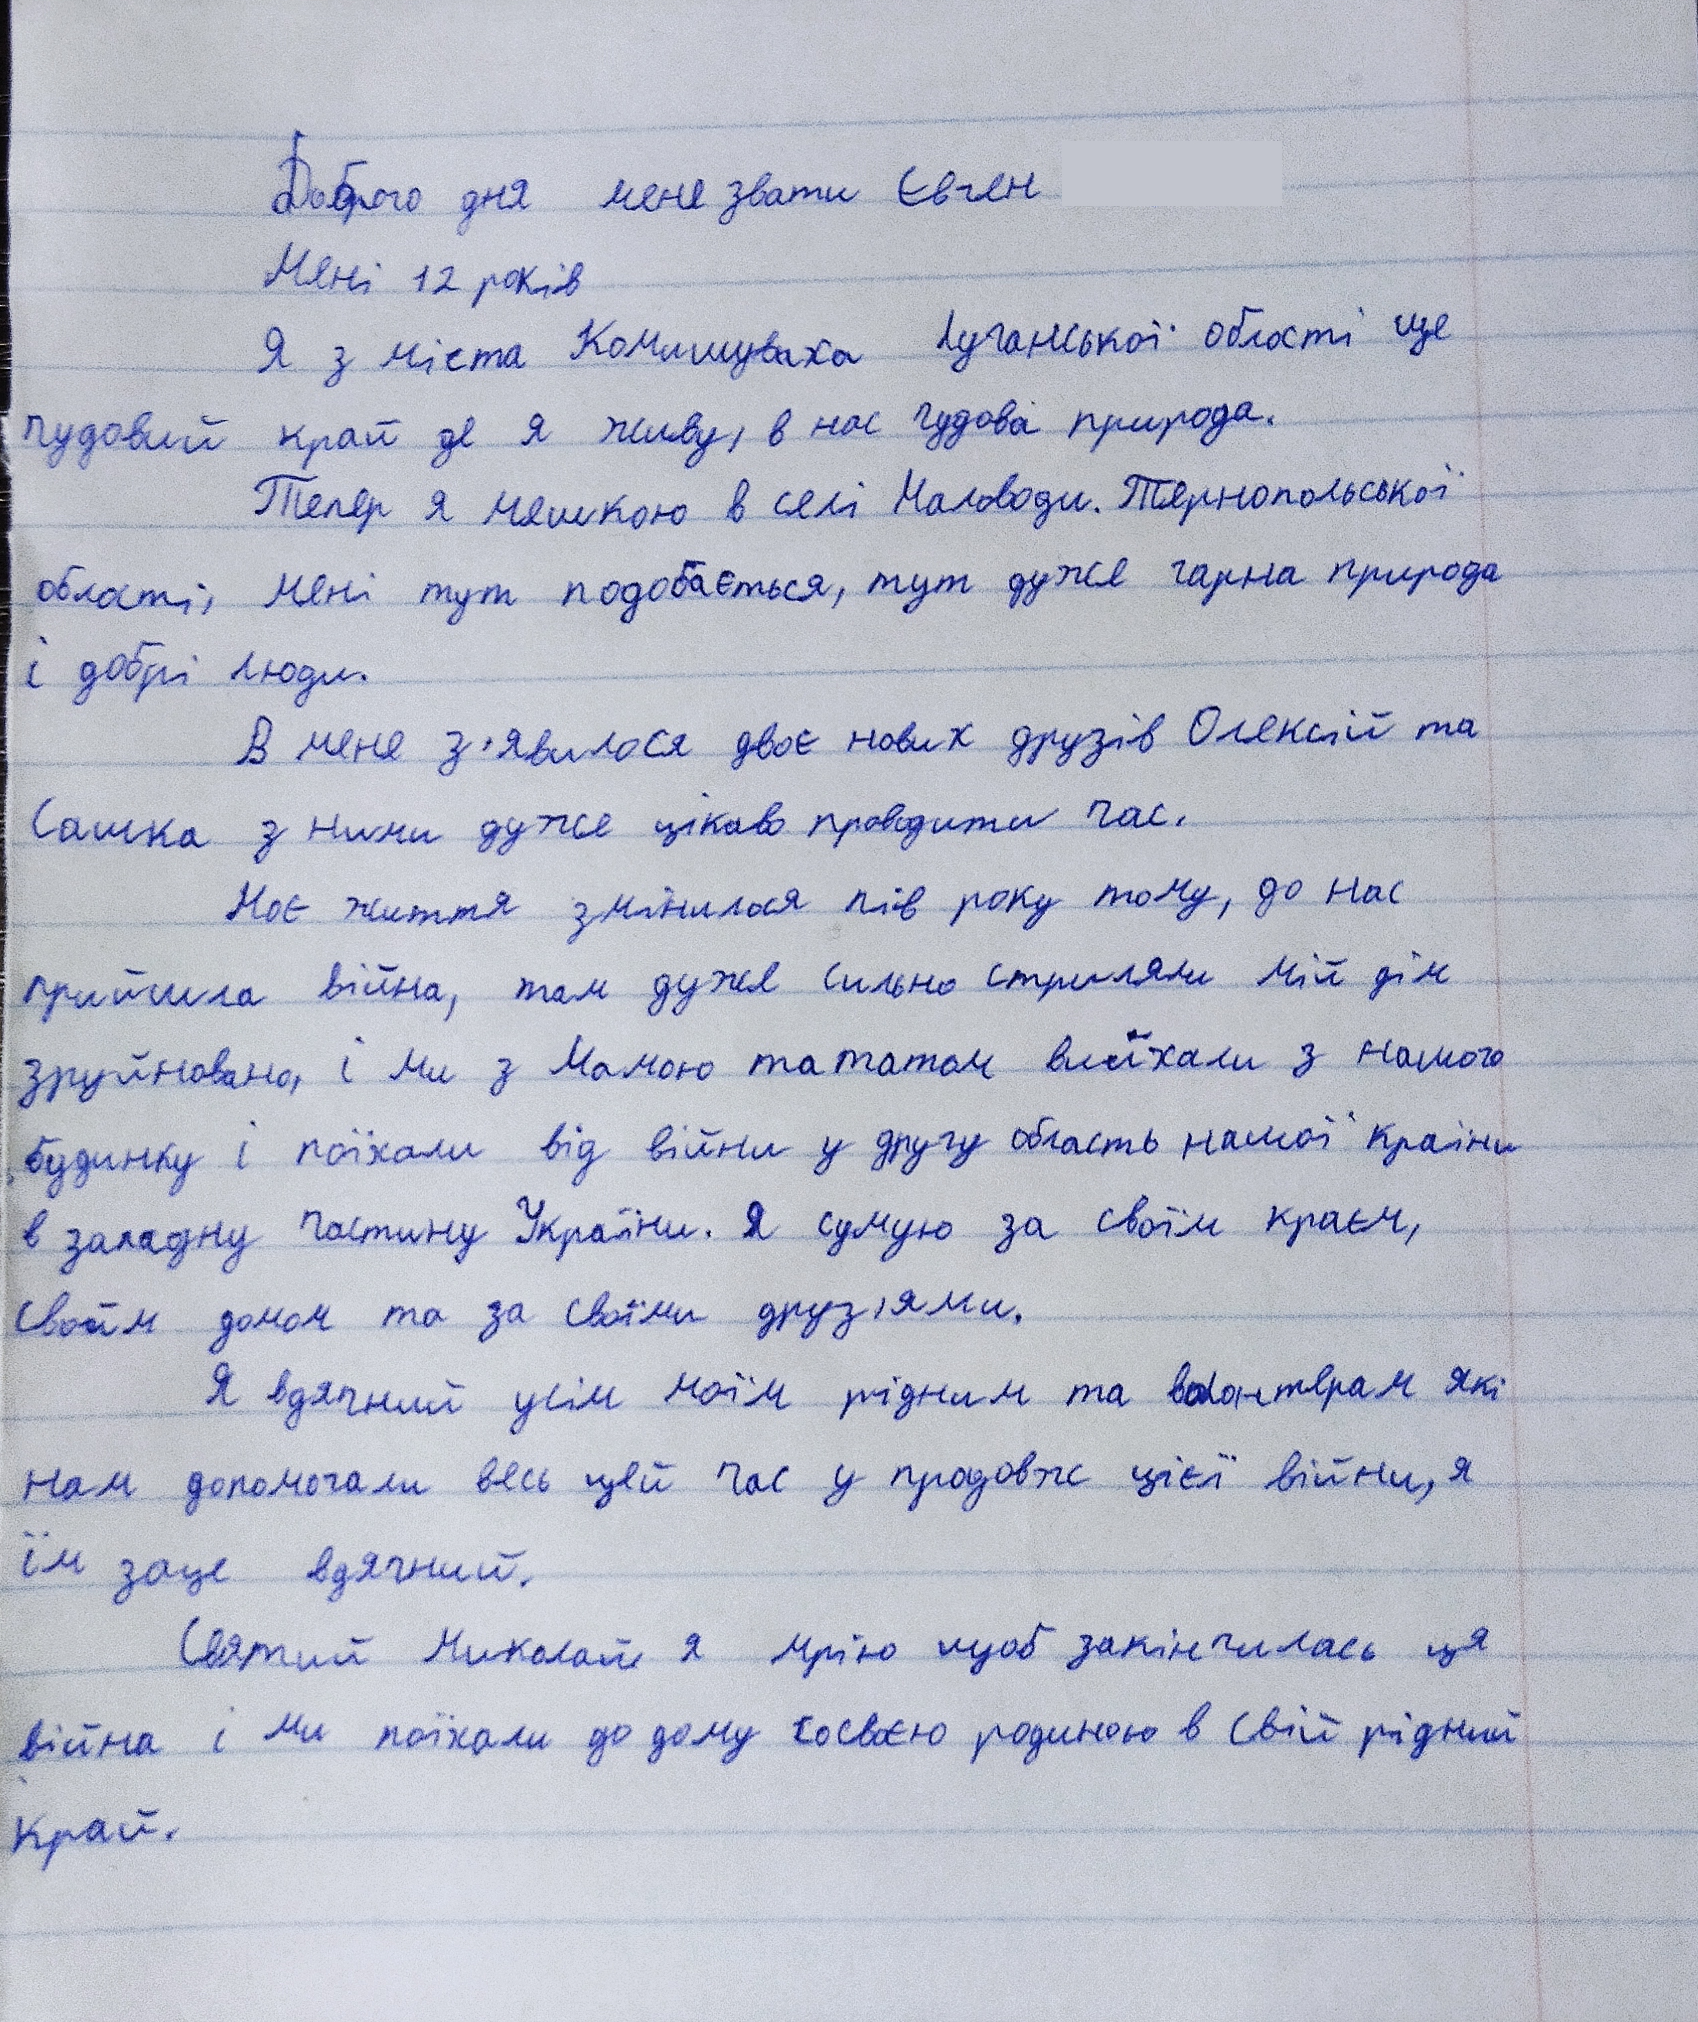 Доброго дня мене звати Євген
Мені 12 років
Я з міста Комишуваха Луганської області це
чудовий край де я живу, в нас чудова природа.
Тепер я мешкою в селі Маловоди. Тернопольської
області, мені тут подобається, тут дуже гарна природа
і добрі люди.
В мене з'явилося двоє нових друзів Олексій та
Сашка з ними дуже цікаво проводити час.
Моє життя змінилося пів року тому, до нас
прийшла війна, там дуже сильно стриляли мій дім
зруйновано, і ми з Мамою та татом виїхали з нашого
будинку і поїхали від війни у другу область нашої країни
в западну частину України. Я сумую за своїм краєм,
своїм домом та за своїми друз'ями.
Я вдячний усім моїм рідним та волонтерам які
нам допомогали весь цей час у продовж цієї війни, я
їм заце вдячний.
Святий Миколай я мрію щоб закінчилась ця
війна і ми поїхали до дому сосвоєю родиною в свій рідний
край.